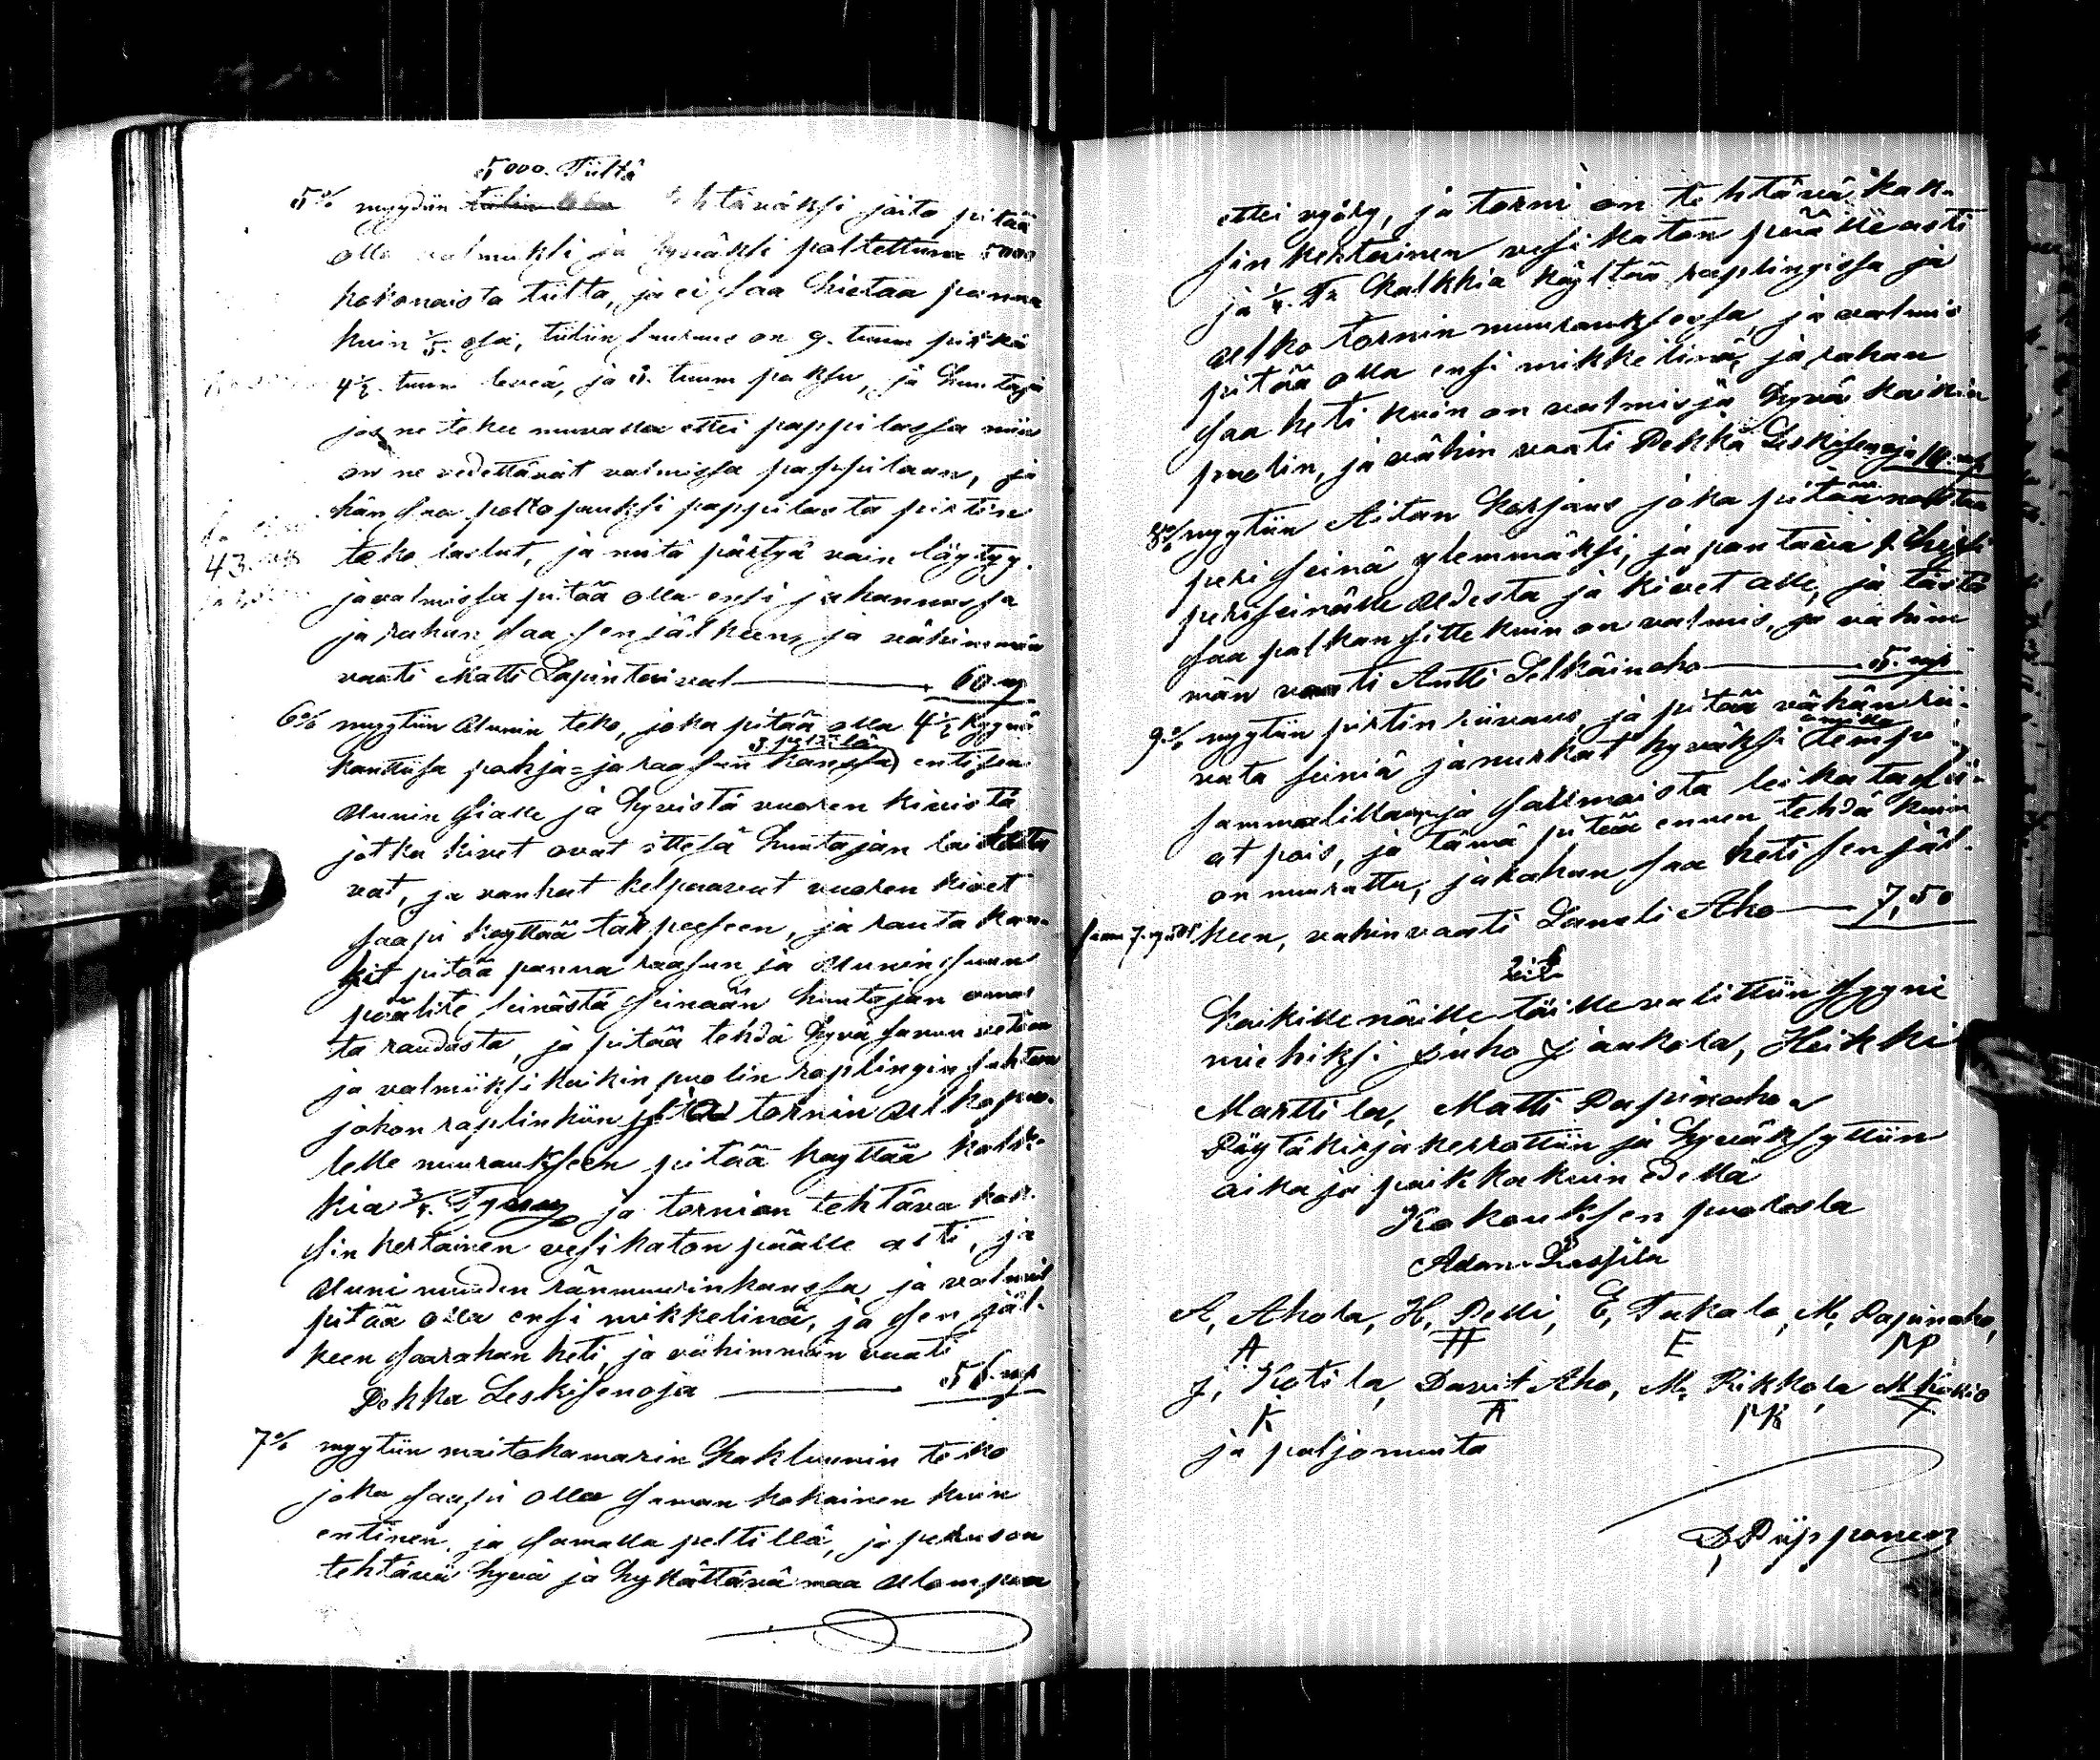 5000. Tiiltä
5% myydiin tehtäväksi joita pitää
olla valmiiksi ja hyväksi poltettuna 5000
kokonaista tiiltä, ja ei saa hietaa panna
kuin 1/5. osa, tiilin suuruus on 9. tuum pitkä
4½. tuum leveä, ja 3. tuum paksu, ja huutaja
jos ne tekee muualla ettei pappilassa niin
on ne vedettävät valmissa pappilaan, ja
hän saa polto puuksi pappilasta pirtin
teko lastut, ja mitä pärtyä vain löytyy.
43.
ja valmissa pitää olla ensi juhannussa
ja rahan saa sen jälkeen, ja vähimmän
vaati Matti Lapintaival 60 mp
6% myytiin Uunin teko, joka pitää olla 4½ kyynä
kanttisa pohja= ja raasun kanssa entisen
Uunin sialle ja hyvistä vuoren kivistä
jotka kivet ovat ittesä huutajan laitetta
vat, ja vanhat kelpaavat vuoren kivet
saapi käyttää tarpeeseen, ja rauta kan-
git pitää panna raasun ja Uunin suun
päälite seinästä seinään huutajan omas
ta raudasta, ja pitää tehdä hyvä savun vetoon
ja valmiiksi kaikin puolin raplingin suhteen
johon raplinkiin ja tornin Ulkopuo-
lelle muuraukseen pitää käyttää kalk-
kia ¾. Tynny ja torni on tehtävä kak-
sin kertainen vesikaton päälle asti, ja
Uuni muuden ränmuurin kanssa ja valmis
pitää olla ensi mikkelinä, ja sen jäl-
keen saa rahan heti, ja vähimmän vaati
Pekka Leskisenoja 56 mp
7% myytiin maitokamarin Kakluunin teko
joka saapi olla saman kokoinen kuin
entinen, ja samalla peltillä, ja perus on
tehtävä hyvä ja hykättävä maa Ulompaa
ettei vyöry, ja torni on tehtävä kak-
sin kertainen vesikaton päälle asti
ja ¼. Tr Kalkkia käyttää raplingissa ja
ulko tornin muurauksessa, ja valmis
pitää olla ensi mikkelinä, ja rahan
saa heti kuin on valmis ja hyvä kaikin
puolin, ja vähin vaati Pekka Leskisenoja 10. mp
8% myytiin Aitan korjaus joka pitää nostaa
peri seinä ylemmäksi, ja pantava 1. hirsi
periseinälle Uudesta ja kivet alle, ja tästä
saa palkan sitte kuin on valmis, ja vähim
män vaati Antti Selkäinaho 5. mp
9% myytiin pirtin riivaus, ja pitää vähän rii-
vata seiniä ja nurkat hyväksi omilla
sammalillaan ja sammaista leikata
at pois, ja tämä pitää ennen tehdä kuin
on muurattu, ja rahan saa heti sen jäl-
keen, vähin vaati Taneli Aho 7,50
Kaikille näille töille valittiin syyni
miehiksi Juho Jaakola, Heikki
Marttila, Matti Papinaho
Pöytäkirja kerrottiin ja hyväksyttiin
aika ja paikka kuin edellä
Kokouksen puolesta
Adam Lassila
A, Ahola, H, Pelli, E, Takala, M, Papinaho,
A H E MP
J, Kotila, Davit Aho, M, Rikkola M Kokko
K A MR
ja paljo muita
D, Piipponen